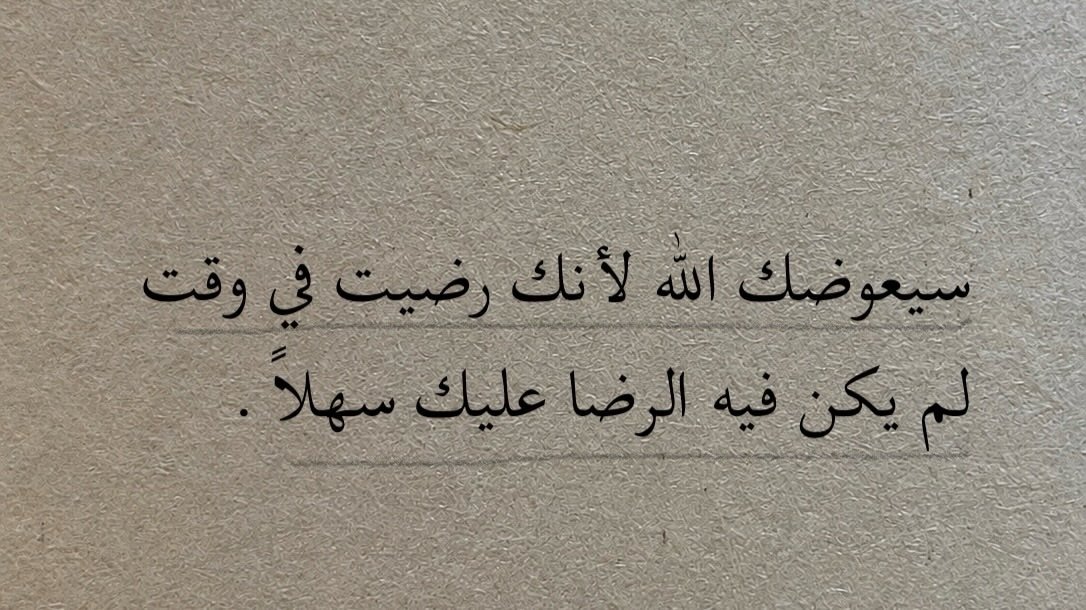 سيعوضك الله لأنك رضيت في وقت
لم يكن فيه الرضا عليك سهلاً .